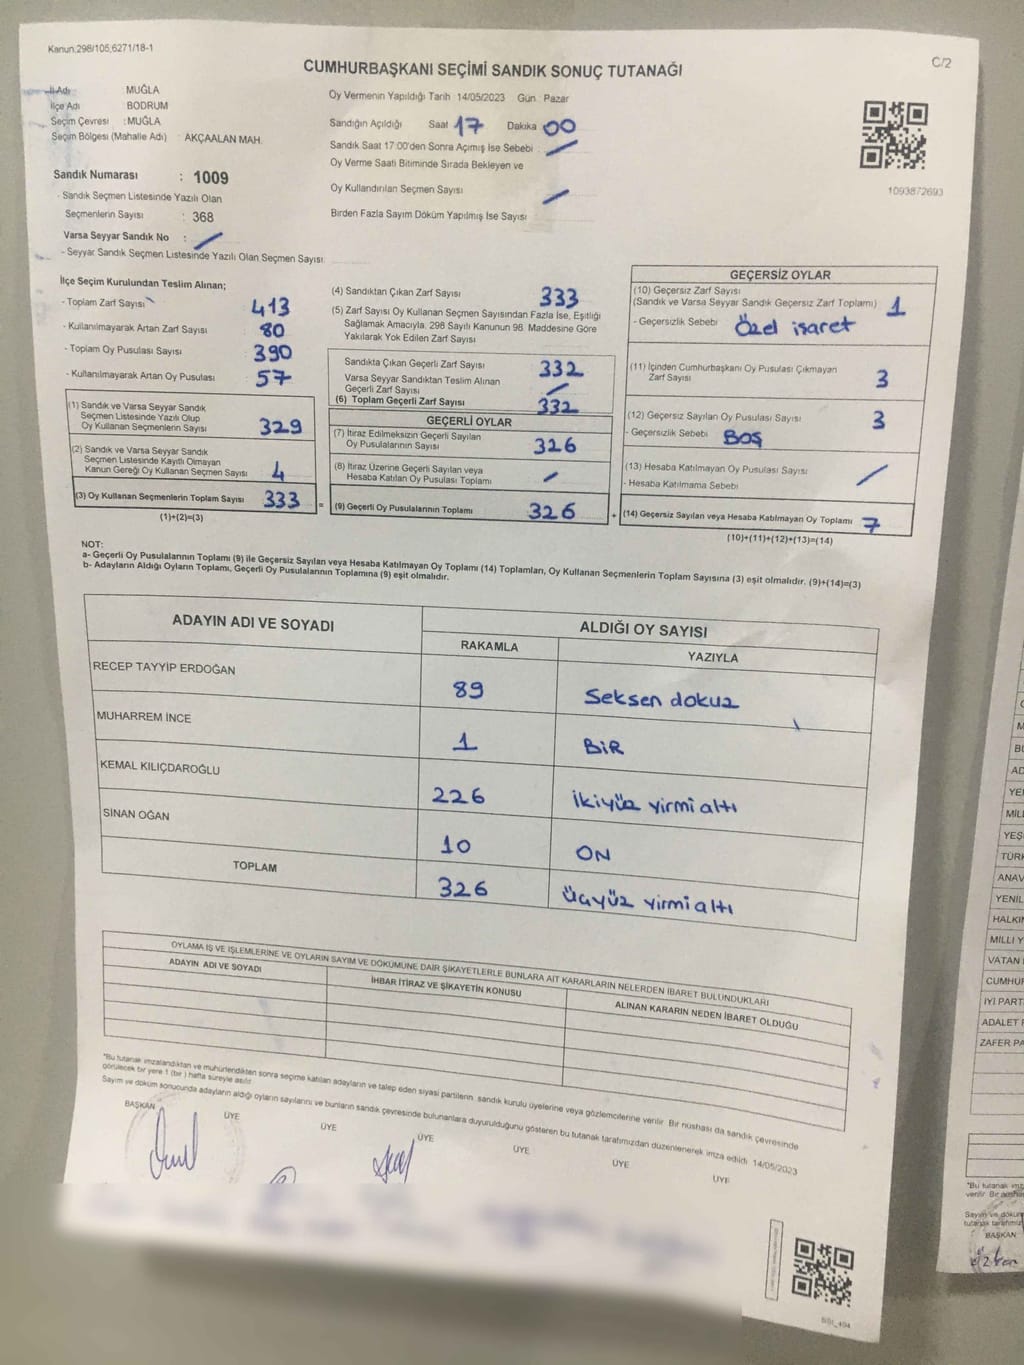 Kanun.298/105,6271/18-1
C/2
CUMHURBAŞKANI SEÇİMİ SANDIK SONUÇ TUTANAĞI
İl Adı MUĞLA
İlçe Adı BODRUM
Seçim Çevresi : MUĞLA
Seçim Bölgesi (Mahalle Adı) AKÇAALAN MAH.
Sandık Numarası : 1009
- Sandık Seçmen Listesinde Yazılı Olan
Seçmenlerin Sayısı : 368
Varsa Seyyar Sandık No :
- Seyyar Sandık Seçmen Listesinde Yazılı Olan Seçmen Sayısı
Oy Vermenin Yapıldığı Tarih 14/05/2023 Gün : Pazar
Sandığın Açıldığı Saat 17 Dakika 00
Sandık Saat 17:00'den Sonra Açımış İse Sebebi :
Oy Verme Saati Bitiminde Sırada Bekleyen ve
Oy Kullandırılan Seçmen Sayısı
Birden Fazla Sayım Döküm Yapılmış İse Sayısı
1093872693
İlçe Seçim Kurulundan Teslim Alınan;
- Toplam Zarf Sayısı 413
- Kullanılmayarak Artan Zarf Sayısı 80
- Toplam Oy Pusulası Sayısı 390
- Kullanılmayarak Artan Oy Pusulası 57
(1) Sandık ve Varsa Seyyar Sandık
Seçmen Listesinde Yazılı Olup
Oy Kullanan Seçmenlerin Sayısı 329
(2) Sandık ve Varsa Seyyar Sandık
Seçmen Listesinde Kayıtlı Olmayan
Kanun Gereği Oy Kullanan Seçmen Sayısı 4
(3) Oy Kullanan Seçmenlerin Toplam Sayısı 333
(1)+(2)=(3)
(4) Sandıktan Çıkan Zarf Sayısı 333
(5) Zarf Sayısı Oy Kullanan Seçmen Sayısından Fazla İse, Eşitliği
Sağlamak Amacıyla, 298 Sayılı Kanunun 98. Maddesine Göre
Yakılarak Yok Edilen Zarf Sayısı
Sandıkta Çıkan Geçerli Zarf Sayısı 332
Varsa Seyyar Sandıktan Teslim Alınan
Geçerli Zarf Sayısı
(6) Toplam Geçerli Zarf Sayısı 332
GEÇERLİ OYLAR
(7) İtiraz Edilmeksizin Geçerli Sayılan
Oy Pusulalarının Sayısı 326
(8) İtiraz Üzerine Geçerli Sayılan veya
Hesaba Katılan Oy Pusulası Toplamı
= (9) Geçerli Oy Pusulalarının Toplamı 326
GEÇERSİZ OYLAR
(10) Geçersiz Zarf Sayısı
(Sandık ve Varsa Seyyar Sandık Geçersiz Zarf Toplamı) 1
- Geçersizlik Sebebi Özel işaret
(11) İçinden Cumhurbaşkanı Oy Pusulası Çıkmayan
Zarf Sayısı 3
(12) Geçersiz Sayılan Oy Pusulası Sayısı 3
- Geçersizlik Sebebi BOŞ
(13) Hesaba Katılmayan Oy Pusulası Sayısı
- Hesaba Katılmama Sebebi
+ (14) Geçersiz Sayılan veya Hesaba Katılmayan Oy Toplamı 7
(10)+(11)+(12)+(13)=(14)
NOT:
a- Geçerli Oy Pusulalarının Toplamı (9) ile Geçersiz Sayılan veya Hesaba Katılmayan Oy Toplamı (14) Toplamları, Oy Kullanan Seçmenlerin Toplam Sayısına (3) eşit olmalıdır. (9)+(14)=(3)
b- Adayların Aldığı Oyların Toplamı, Geçerli Oy Pusulalarının Toplamına (9) eşit olmalıdır.
ADAYIN ADI VE SOYADI
ALDIĞI OY SAYISI
RAKAMLA YAZIYLA
RECEP TAYYİP ERDOĞAN 89 Seksen dokuz
MUHARREM İNCE 1 BİR
KEMAL KILIÇDAROĞLU 226 İkiyüz yirmi altı
SİNAN OĞAN 10 ON
TOPLAM 326 Üçyüz yirmi altı
OYLAMA İŞ VE İŞLEMLERİNE VE OYLARIN SAYIM VE DÖKÜMÜNE DAİR ŞİKAYETLERLE BUNLARA AİT KARARLARIN NELERDEN İBARET BULUNDUKLARI
ADAYIN ADI VE SOYADI İHBAR İTİRAZ VE ŞİKAYETİN KONUSU ALINAN KARARIN NEDEN İBARET OLDUĞU
*Bu tutanak imzalandıktan ve mühürlendikten sonra seçime katılan adayların ve talep eden siyasi partilerin sandık kurulu üyelerine veya gözlemcilerine verilir. Bir nüshası da sandık çevresinde
görülecek bir yere 1 (bir) hafta süreyle asılır.
Sayım ve döküm sonucunda adayların aldığı oyların sayılarını ve bunların sandık çevresinde bulunanlara duyurulduğunu gösteren bu tutanak tarafımızdan düzenlenerek imza edildi 14/05/2023
BAŞKAN ÜYE ÜYE ÜYE ÜYE ÜYE ÜYE
YENİL
HALKI
MİLLİ Y
VATAN
CUMHUR
İYİ PARTİ
ADALET
ZAFER PA
*Bu tutanak imz
verilir. Bir nüsha
BAŞKAN